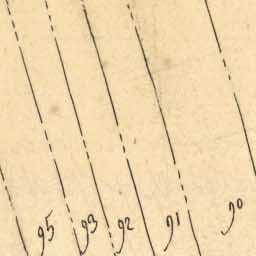 95 93 92 91 90